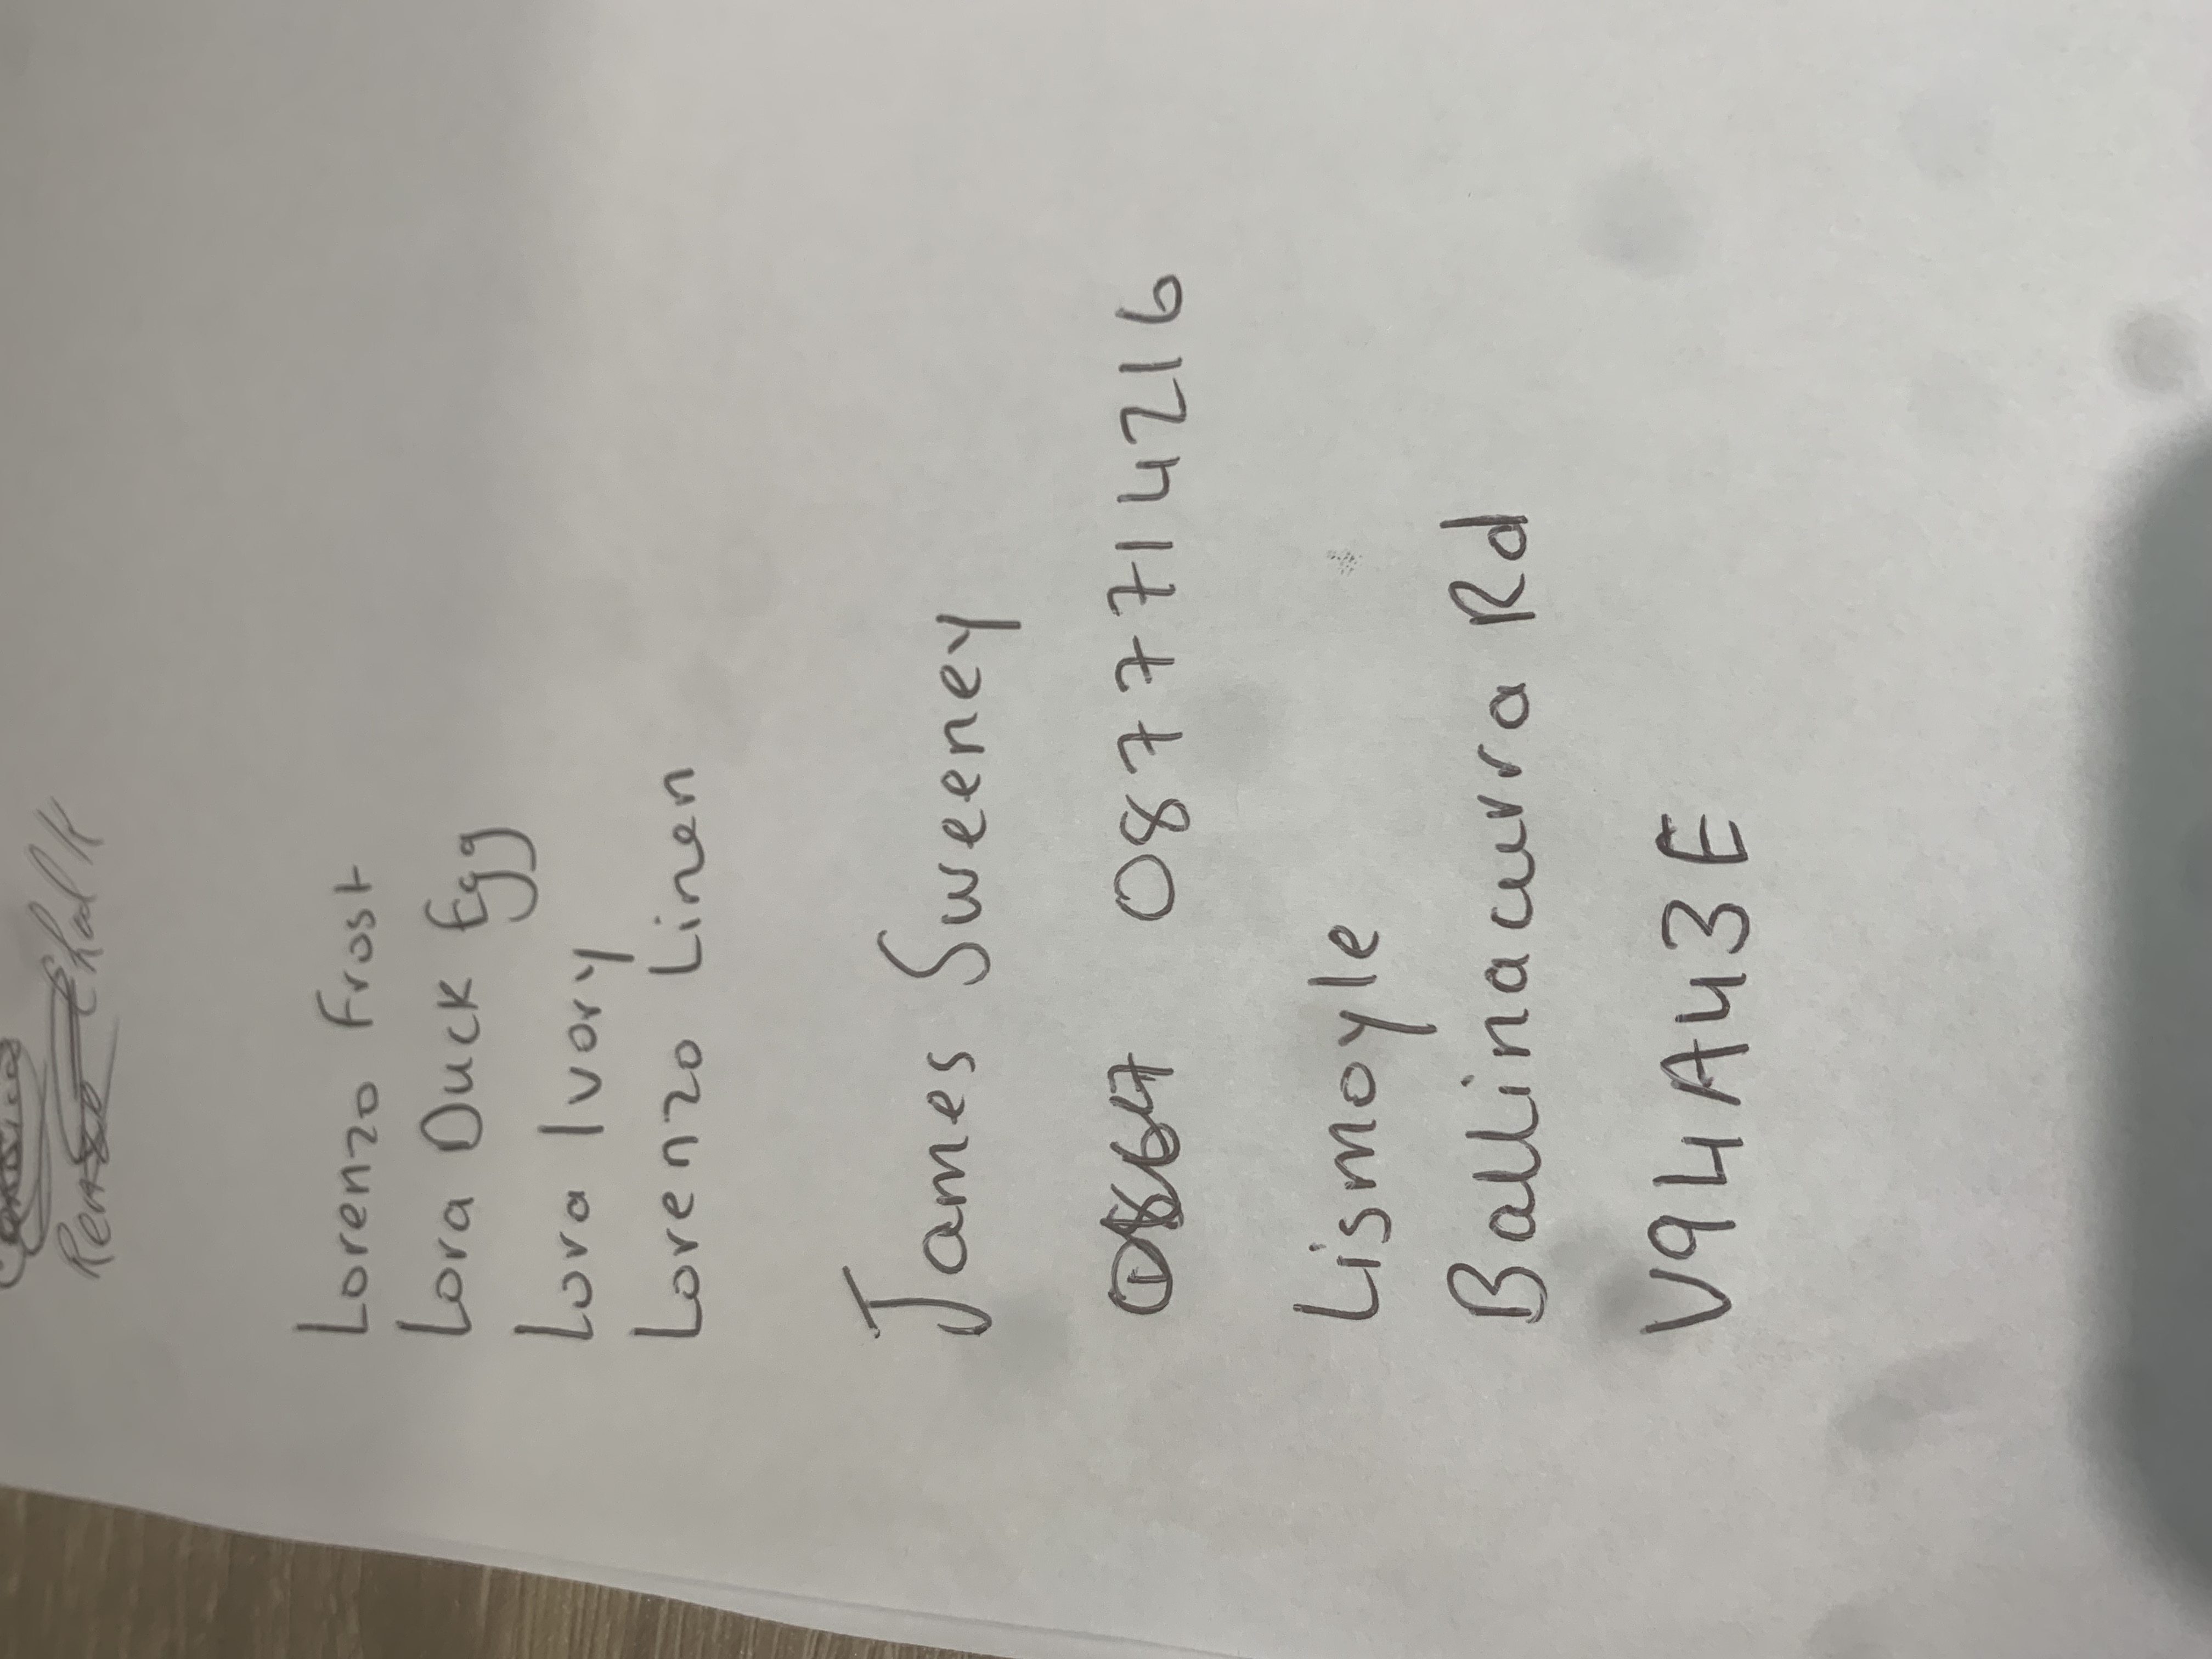 Chalk
Lorenzo Frost
Lora Duck Egg
Lora Ivory
Lorenzo Linen
James Sweeney
087 7714216
Lismoyle
Ballinacurra Rd
V94A43E